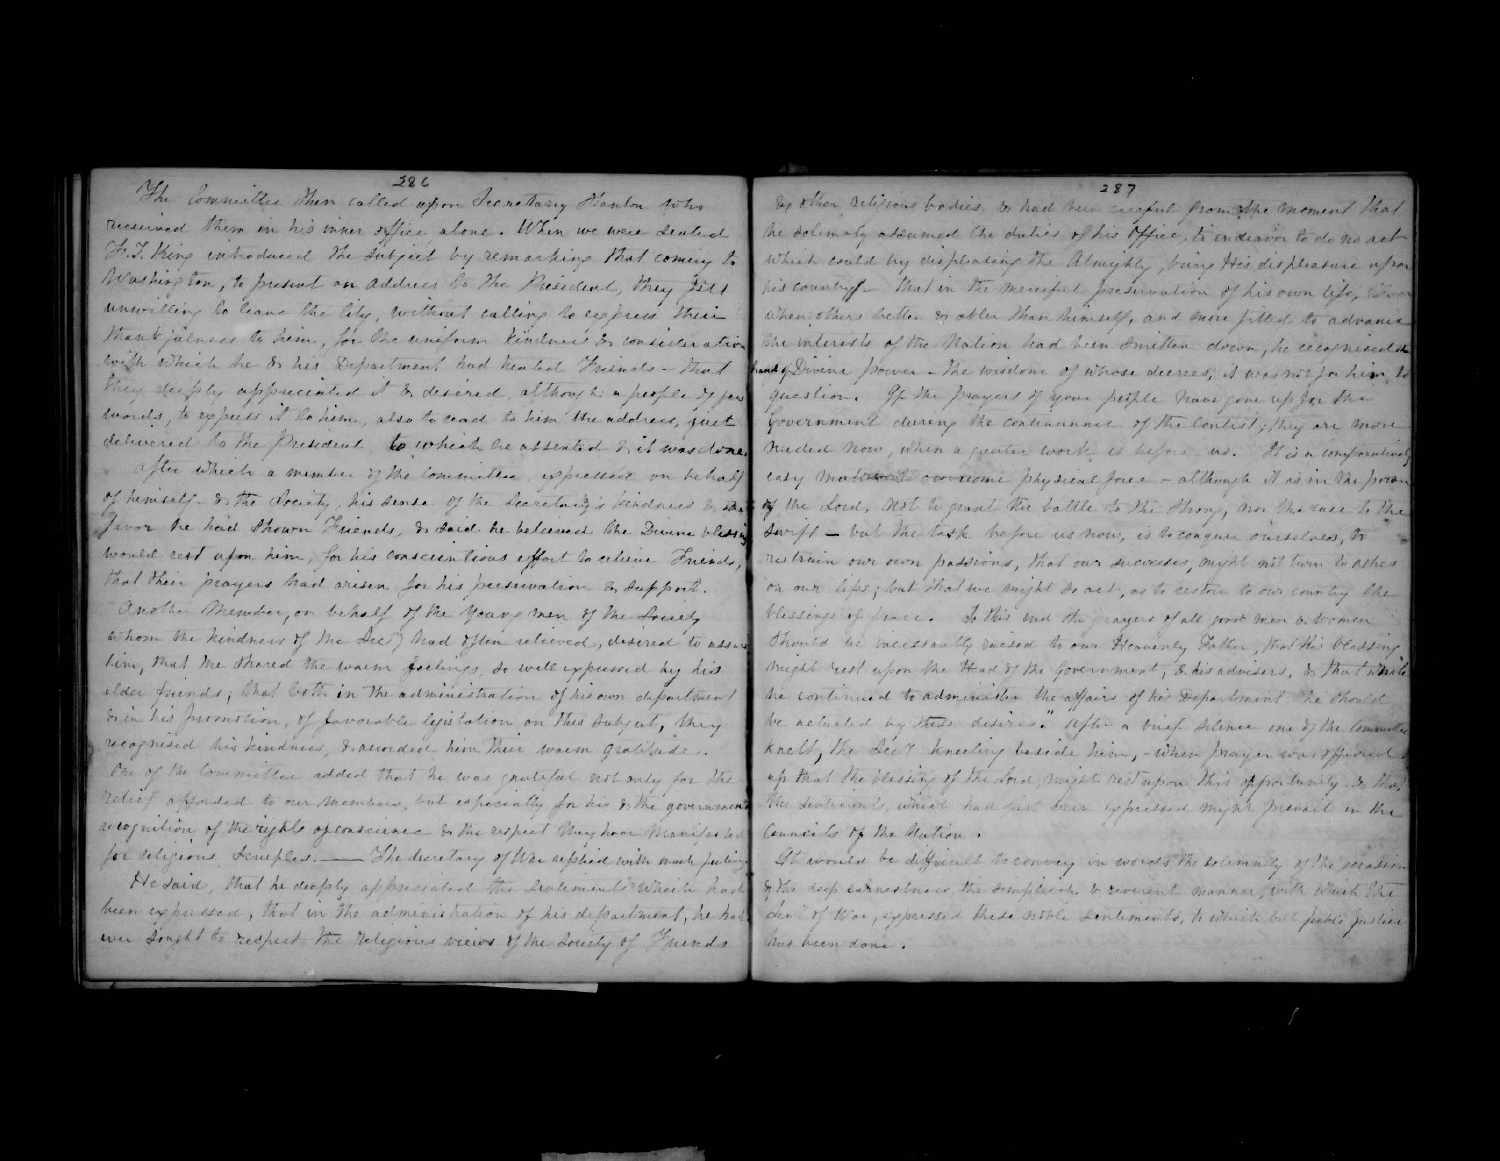 286
The Committee then called upon Secretary Stanton who
received them in his inner office, alone. When we were seated
F. T. King introduced the subject by remarking that coming to
Washington, to present an address to the President, they felt
unwilling to leave the City, without calling to express their
thankfulness to him, for the uniform kindness & consideration
with which he & his Department had treated Friends - that
they deeply appreciated it & desired, although a people of few
words, to express it to him, also to read to him the address, just
delivered to the President, to which he assented & it was done.
After which a member of the Committee, expressed on behalf
of himself & the Society, his sense of the Secretary's kindness & the
favor he had shown Friends, & said he believed the Divine blessing
would rest upon him, for his conscientious effort to relieve Friends,
that their prayers had arisen for his preservation & support.
Another Member, on behalf of the young men of the Society
whom the kindness of the Secy had often relieved, desired to assure
him, that he shared the warm feelings, so well expressed by his
elder friends; that both in the administration of his own department
& in his promotion, of favourable legislation on this subject, they
recognised his kindness, & accorded him their warm gratitude.
One of the Committee added that he was grateful not only for the
relief afforded to our members, but especially for his & the governments
recognition of the rights of conscience & the respect they have manifested
for religious scruples. — The Secretary of War replied with much feeling.
He said, that he deeply appreciated the sentiments which had
been expressed, that in the administration of his department, he had
ever sought to respect the religious views of the Society of Friends
287
& other religious bodies, & had been careful from the moment that
he solemnly assumed the duties of his Office, to endeavor to do no act
which could by displeasing the Almighty, bring His displeasure upon
his country - that in the merciful preservation of his own life,
when others better & abler than himself, and more fitted to advance
the interests of the Nation had been smitten down, he recognised the
hand of Divine power - the wisdom of whose decrees, it was not for him to
question. If the prayers of your people have gone up for the
Government during the continuance of the Contest, they are more
needed now, when a greater work is before us. It is a comparatively
easy matter to overcome physical force - although it is in the power
of the Lord, not to grant the battle to the strong, nor the race to the
swift - but the task before us now, is to conquer ourselves, to
restrain our own passions, that our successes, might not turn to ashes
on our lips; but that we might so act, as to restore to our country the
blessings of peace. To this end the prayers of all good men & women
should be incessantly raised to our Heavenly Father, that His blessing
might rest upon the Head of the Government, & his advisers, & that while
he continued to administer the affairs of his Department he should
be actuated by these desires." After a brief silence one of the Committee
knelt, the Secy kneeling beside him, - when prayer was offered
up that the blessing of the Lord, might rest upon this opportunity & that
the sentiments, which had just been expressed might prevail in the
Councils of the Nation.
It would be difficult to convey in words the solemnity of the occasion
& the deep earnestness, the simplicity & reverent manner, with which the
Secy of War, expressed these noble sentiments, to which but feeble justice
has been done.